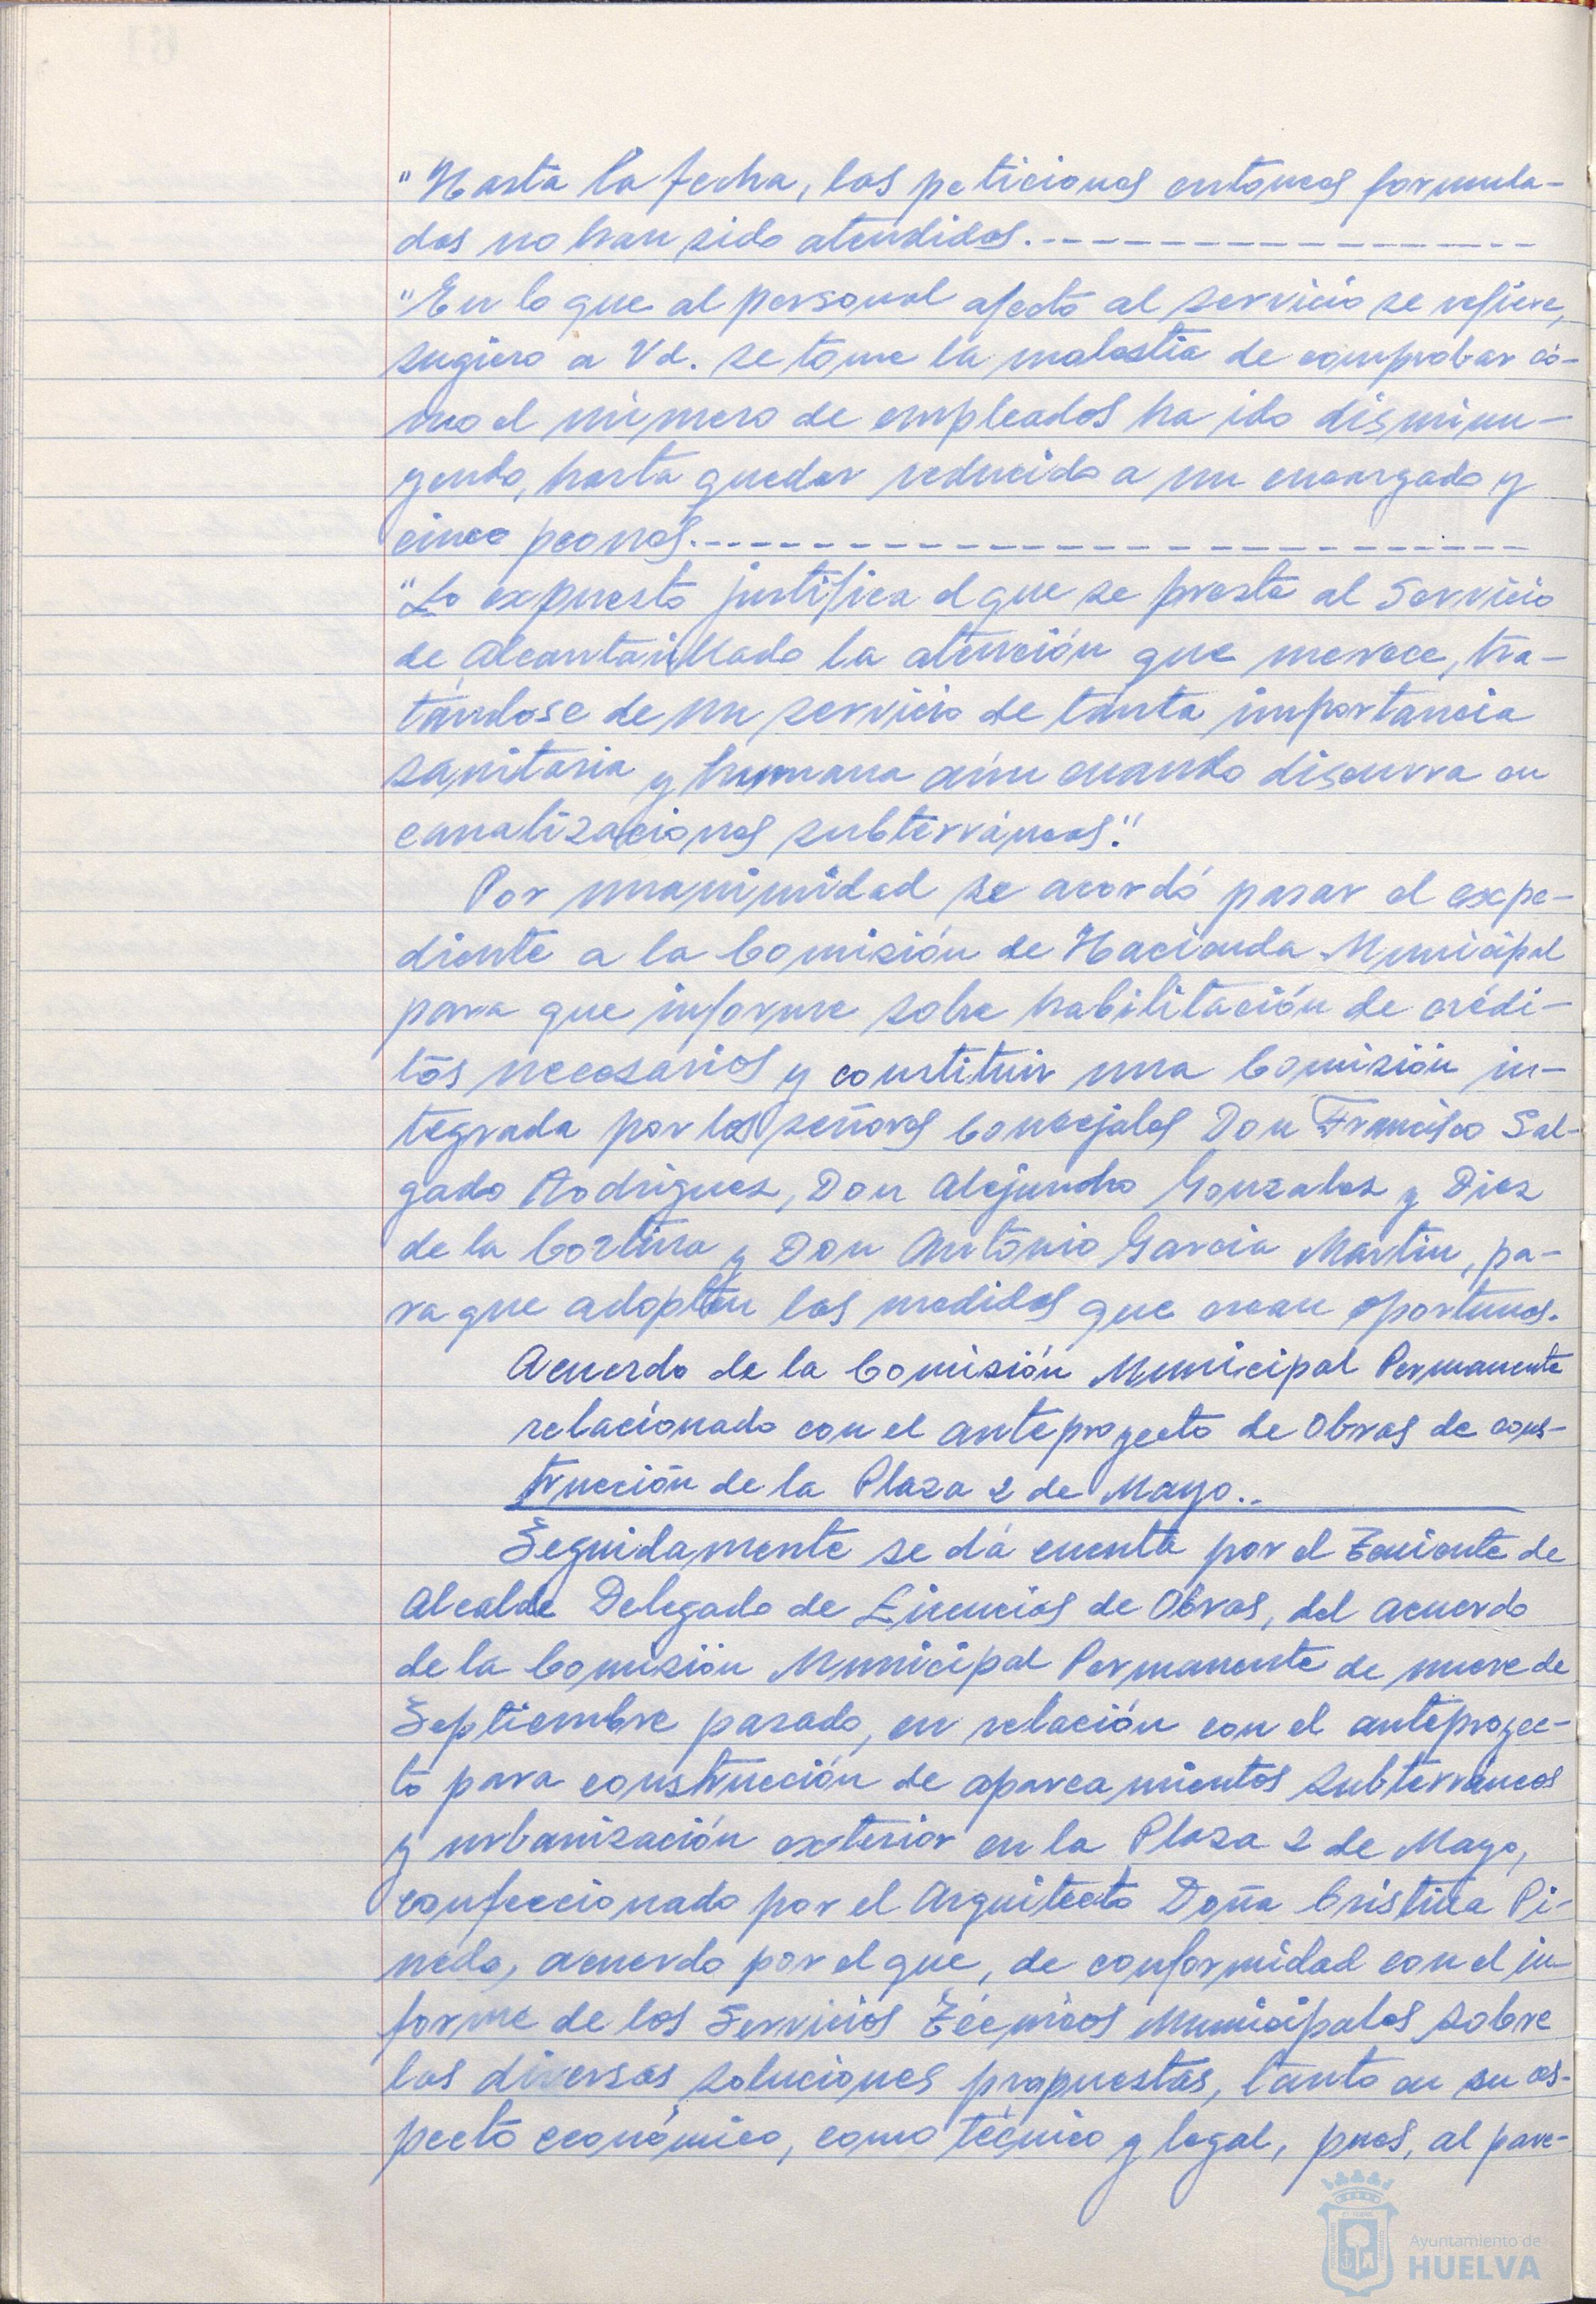 "Hasta la fecha, las peticiones entonces formula-
das no han sido atendidas.-----------------
"En lo que al personal afecto al servicio se refiere,
sugiero a Vd. se tome la molestia de comprobar có-
mo el número de empleados ha ido disminu-
yendo, hasta quedar reducido a un encargado y
cinco peones.-----------------------
"Lo expuesto justifica el que se preste al Servicio
de Alcantarillado la atención que merece, tra-
tándose de un servicio de tanta importancia
sanitaria y humana aún cuando discurra en
canalizaciones subterráneas."
Por unanimidad se acordó pasar el expe-
diente a la Comisión de Hacienda Municipal
para que informe sobre habilitación de crédi-
tos necesarios y constituir una Comisión in-
tegrada por los señores Concejales Don Francisco Sal-
gado Rodriguez, Don Alejandro Gonzalez y Diez
de la Cortina y Don Antonio Garcia Martin, pa-
ra que adopten las medidas que crean oportunas.
Acuerdo de la Comisión Municipal Permanente
relacionado con el anteproyecto de obras de cons-
trucción de la Plaza 2 de Mayo..
Seguidamente se dá cuenta por el Teniente de
Alcalde Delegado de Licencias de Obras, del acuerdo
de la Comisión Municipal Permanente de nueve de
Septiembre pasado, en relación con el anteproyec-
to para construcción de aparcamientos subterráneos
y urbanización exterior en la Plaza 2 de Mayo,
confeccionado por el Arquitecto Doña Cristina Pi-
neda, acuerdo por el que, de conformidad con el in
forme de los Servicios Técnicos Municipales sobre
las diversas soluciones propuestas, tanto en su as-
pecto económico, como técnico y legal, pues, al pare-
Ayuntamiento de
HUELVA